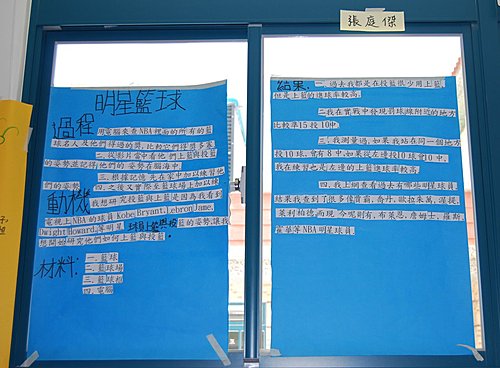 張庭傑
明星籃球
過程
用電腦來查NBA裡面的所有的籃
球名人及他們得過的獎,比較它們得獎多寡
二.從影片當中看他們上籃與投籃
的姿勢並記得他們的姿勢在腦海中
三.根據記憶先在家中加以練習他
們的姿勢
四.之後又實際至籃球場加以練
動機
我想研究投籃與上籃是因為看到
電視上NBA的球員Kobe Bryant, Lebron Jame,
Dwight Howard,等明星球員上籃與投籃的姿勢,讓我
想開始研究他們如何上籃與投籃。
材料:
一.籃球
二.籃球場
三.籃球框
四.電腦
結果.
一.過去我都是在投籃很少用上籃,
但是上籃的進球率較高。
二.我在實戰中發現罰球線附近的地方
比較準15投10中.
三.我測量過,如果我站在同一個地方
投10球,會有8中,如果從左邊投10球會10中,
我在練習也是左邊的上籃進球率較高.
四.我上網查看過去有哪些明星球員,
結果我查到了很多像賈霸,奇丹,歐拉朱萬,
萊利柏德而現今呢則有,布萊恩,詹姆士,羅斯,
霍華等NBA明星球員.